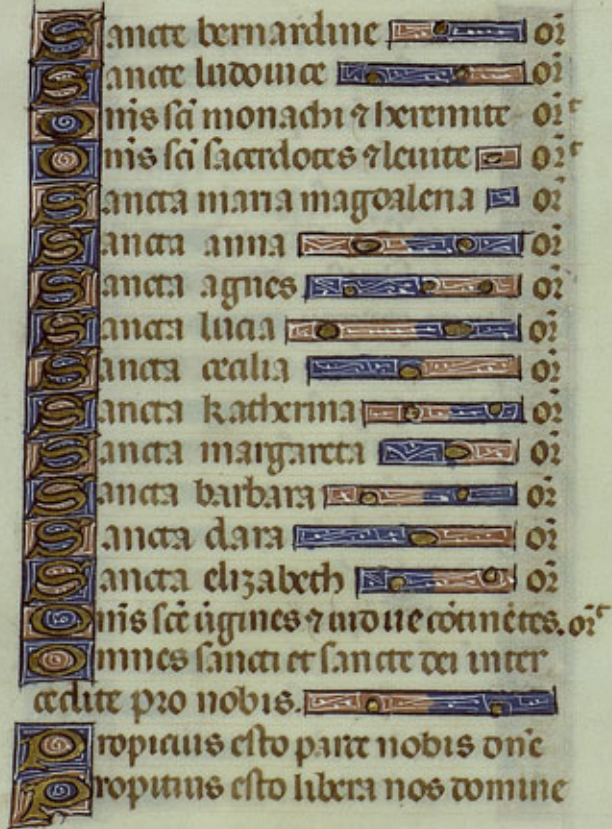 Sancte bernardine or̃
Sancte ludouice or̃
Om̃s sc̃i monachi ⁊ heremite or̃t
Om̃s sc̃i sacerdotes ⁊ leuite or̃t
Sancta maria magdalena or̃
Sancta anna or̃
Sancta agnes or̃
Sancta lucia or̃
Sancta cecilia or̃
Sancta katherina or̃
Sancta margareta or̃
Sancta barbara or̃
Sancta clara or̃
Sancta elizabeth or̃
Om̃s sc̃e ũgines ⁊ uidue cõtinẽtes. or̃t
Omnes sancti et sancte dei inter
cedite pro nobis.
Propicius esto parce nobis dñe
Propitius esto libera nos domine